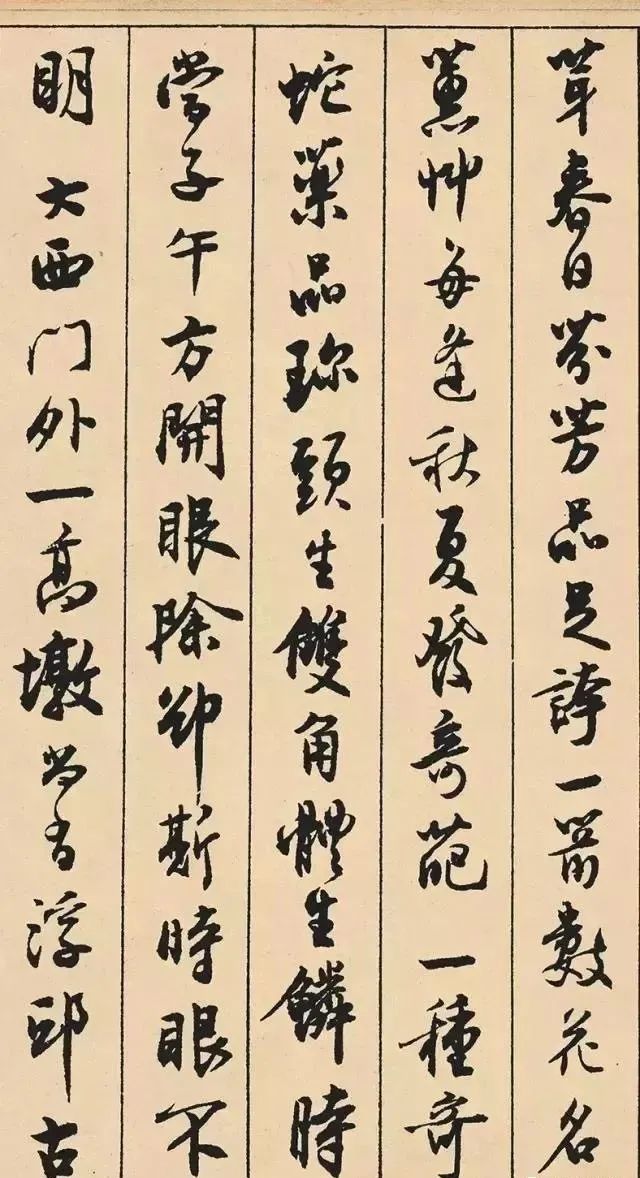 茸春日芬芳品足誇一箭數花名
薰艸每逢秋夏發奇葩 一種奇
蛇藥品珍頸生雙角體生鱗時
當子午方開眼除卻斯時眼不
明 大西門外一高墩尚有浮邱古